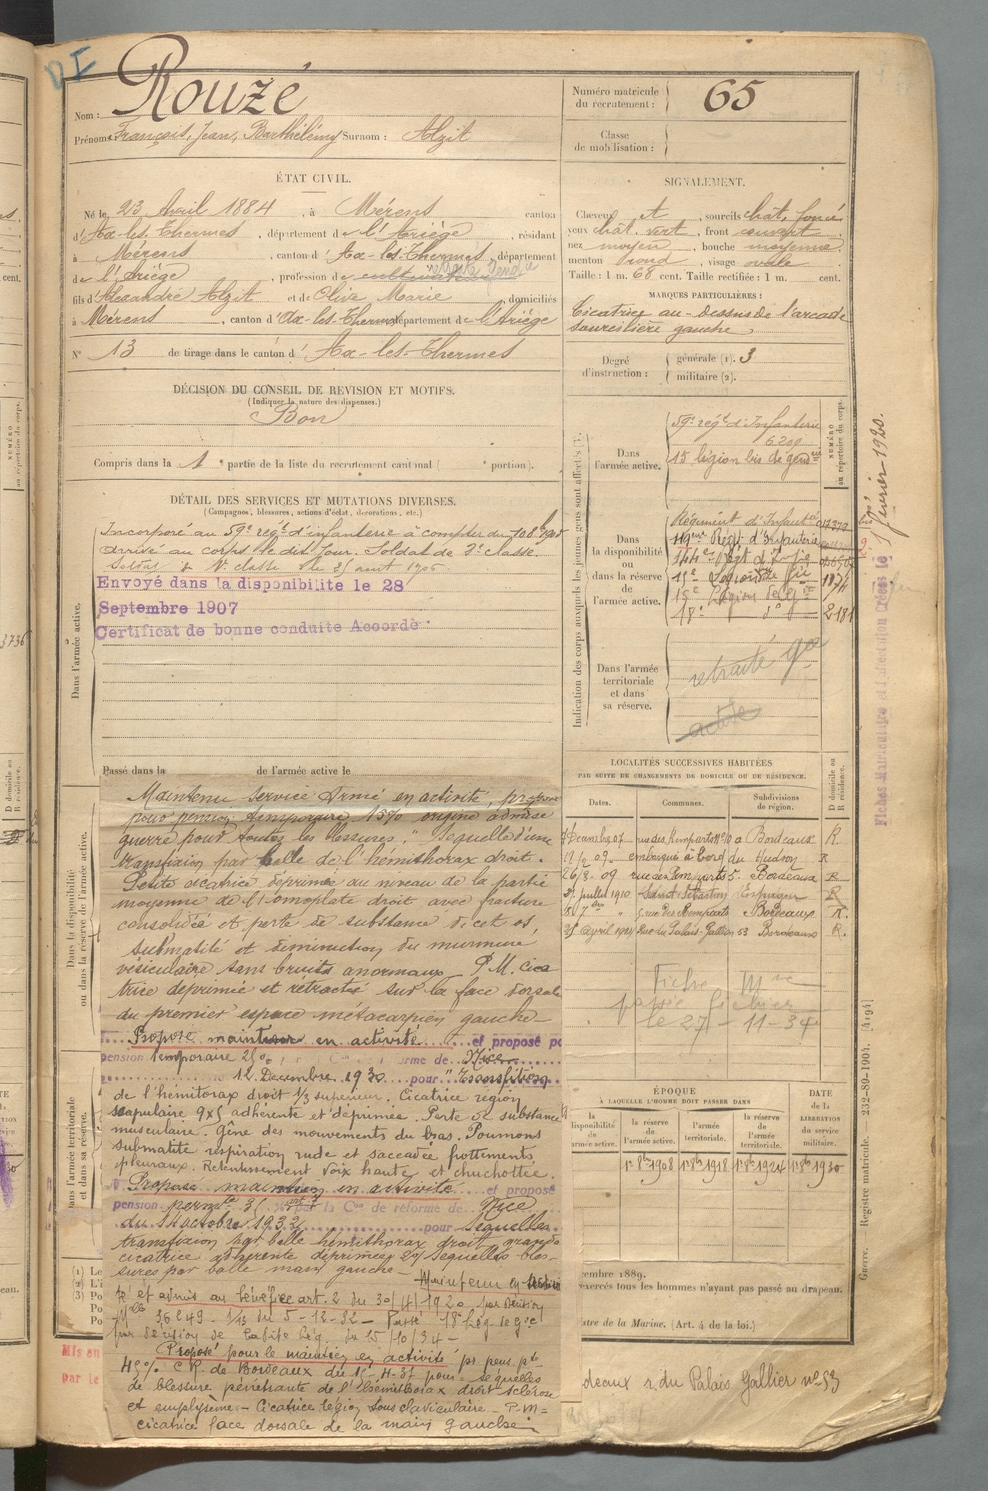 DI
Nom : Rouzé
Prénoms : François, Jean, Barthélémy Surnom : Alzit
Numéro matricule du recrutement : 65
Classe de mobilisation :
ÉTAT CIVIL.
Né le 23 Avril 1884, à Mérens canton
d'Ax-les-Thermes, département de l'Ariège, résidant
à Mérens, canton d'Ax-les-Thermes, département
de l'Ariège, profession de
fils d'Alexandre Alzit et de Olive Marie, domiciliés
à Mérens, canton d'Ax-les-Thermes département de l'Ariège
N° 13 de tirage dans le canton d'Ax-les-Thermes
SIGNALEMENT.
Cheveux ct, sourcils chât. foncé
yeux chât. vert, front couvert
nez moyen, bouche moyenne
menton rond, visage ovale
Taille : 1 m. 68 cent. Taille rectifiée : 1 m. cent.
MARQUES PARTICULIÈRES :
Cicatrice au-dessus de l'arcade
sourcilière gauche.
Degré d'instruction : générale (1). 3
militaire (2).
DÉCISION DU CONSEIL DE REVISION ET MOTIFS.
(Indiquer la nature des dispenses.)
Bon
Compris dans la 1e partie de la liste du recrutement cantonal ( e portion).
DÉTAIL DES SERVICES ET MUTATIONS DIVERSES.
(Campagnes, blessures, actions d'éclat, décorations, etc.)
Dans l'armée active.
Incorporé au 59e régt d'infanterie à compter du
arrivé au corps le dit jour. Soldat de 2e classe.
Soldat de 1e classe le 25 août 1906
Envoyé dans la disponibilité le 28
Septembre 1907
Certificat de bonne conduite Accordé
Passé dans la de l'armée active le
Indication des corps auxquels les jeunes gens sont affectés
NUMÉRO au répertoire du corps.
Dans l'armée active.
59e régt d'Infanterie
6209
15 légion bis de gendrie
Dans la disponibilité ou dans la réserve de l'armée active.
Régiment d'Infanterie
Régt d'Infanterie
144e Régt d'Infie
15e Légion
15e Légion de Gie
18e do 2181
Dans l'armée territoriale et dans sa réserve.
retraité
active
Février 1920.
LOCALITÉS SUCCESSIVES HABITÉES
PAR SUITE DE CHANGEMENTS DE DOMICILE OU DE RÉSIDENCE.
Dates. Communes. Subdivisions de région. D domicile ou R résidence.
rue des Remparts Bordeaux R.
embarqué à bord du Hudson R
26/8-09 rue des Remparts 5. Bordeaux R
juillet 1910 Saint Sébastien Espagne R
rue des Remparts Bordeaux R.
Avril 1921 Rue du Palais-Gallien 53 Bordeaux R.
Fiche Mle
passée fichier
le 27-11-34
ÉPOQUE
À LAQUELLE L'HOMME DOIT PASSER DANS
la disponibilité de armée active.
la réserve de l'armée active.
l'armée territoriale.
la réserve de l'armée territoriale.
DATE de la LIBÉRATION du service militaire.
1r 8bre 1908 1r 8bre 1918 1r 8bre 1924 1r 8bre 1930
Dans la disponibilité ou dans la réserve de l'armée active.
Maintenu service Armé en activité, proposé
pour pension temporaire 15% origine admise
guerre pour toutes les blessures. " séquelle d'une
transfixion par balle de l'hémithorax droit.
Petite cicatrice déprimée au niveau de la partie
moyenne de l'Omoplate droit avec fracture
consolidée et perte de substance de cet os,
submatité et diminution du murmure
vésiculaire sans bruits anormaux P.M. cica
trice déprimée et rétractée sur la face dorsale
du premier espace métacarpien gauche
Proposé maintien en activité et proposé po
pension temporaire 25% réforme de Nice
12 Décembre 1930 pour "Transfixion
de l'hémitorax droit 1/3 supérieur. Cicatrice région
scapulaire 9x5 adhérente et déprimée. Perte de substance
musculaire. Gêne des mouvements du bras. Poumons
submatité respiration rude et saccadée frottements
pleuraux. Retentissement voix haute et chuchottée.
Proposé maintien en activité et proposé
pension permte 35 par la Con de réforme de Nice
du 14 octobre 1932 pour séquelles
transfixion par balle hémithorax droit grande
cicatrice adhérente déprimée 2/ séquelles bles-
sures par balle main gauche - Maintenu en activi
té et admis au bénéfice art. 2 du 30/4/1920 par Décision
Mlle 36249 du 5-12-32 - Passé 18e Lég. de Gie
par décision de du 15/10/34 -
Proposé pour le maintien en activité pr pens. pte
45% C.R. de Bordeaux du pour séquelles
de blessure pénétrante de l'hémithorax droit sclérose
et emphysème. - Cicatrice région sous claviculaire - P.M =
cicatrice face dorsale de la main gauche
cembre 1889.
exercés tous les hommes n'ayant pas passé au drapeau.
stre de la Marine. (Art. 4 de la loi.)
deaux r. du Palais Gallier no 53
Mis en
par le
Registre matricule. — 232-89-1904. [4194]